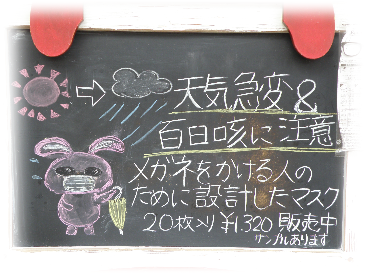 天気急変&
百日咳に注意。
メガネをかける人の
ために設計したマスク
20枚入り ¥1,320 販売中
サンプルあります